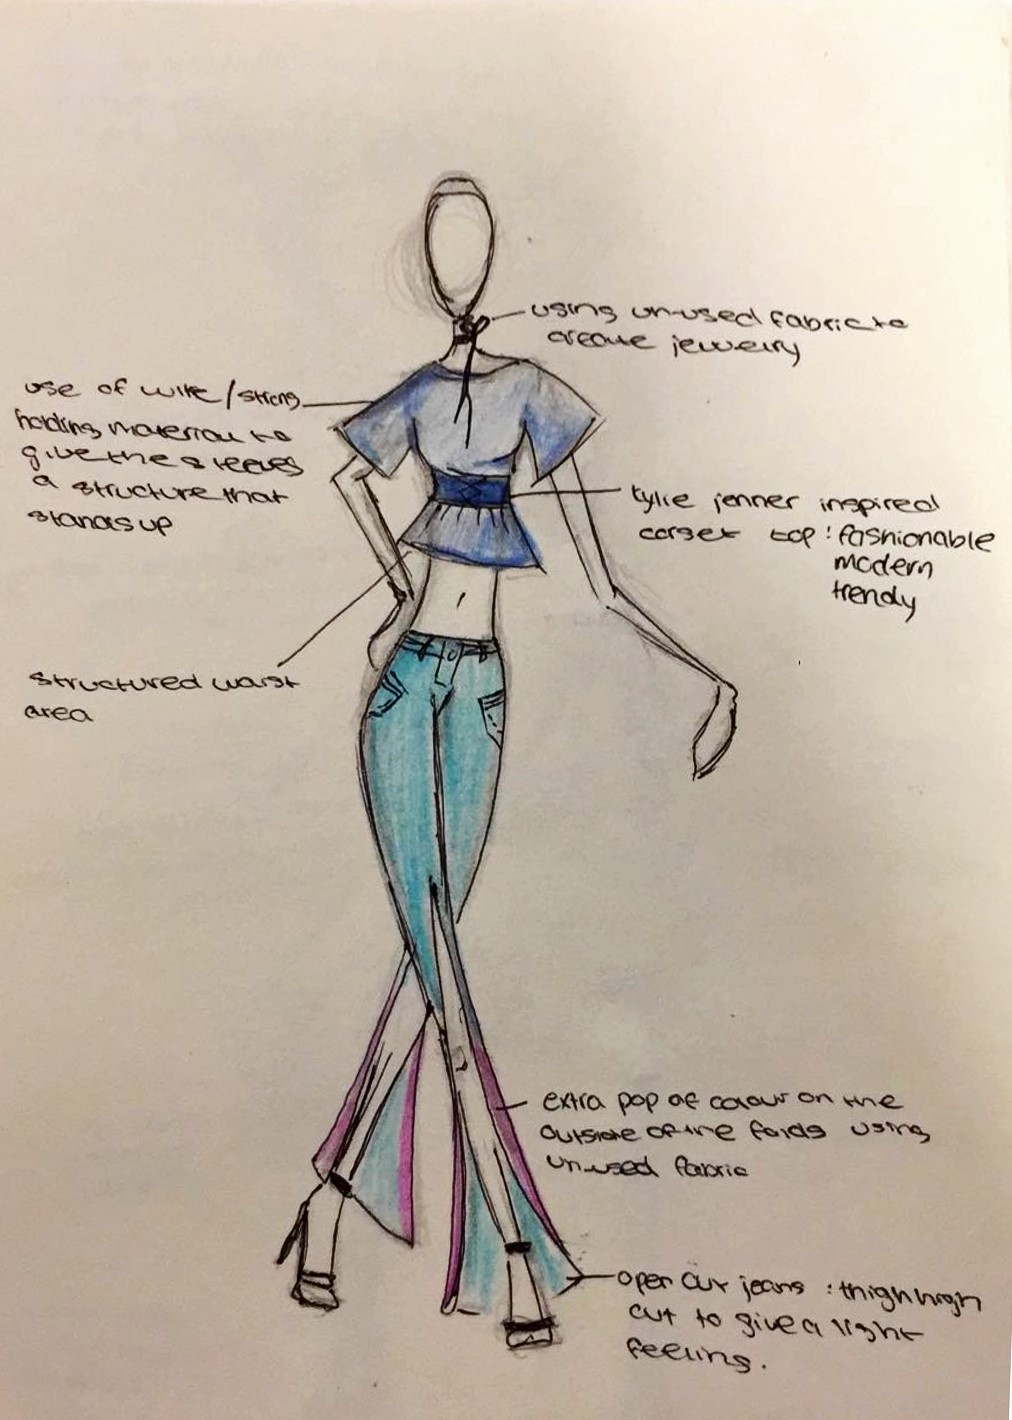 using un-used fabric to
create jewelry
use of wire/strong
holding material to
give the sleeves
a structure that
stands up
kylie jenner inspired
corset top: fashionable
modern
trendy
structured waist
area
extra pop of colour on the
outside of the folds using
un-used fabric
open cut jeans: thigh high
cut to give a light
feeling.